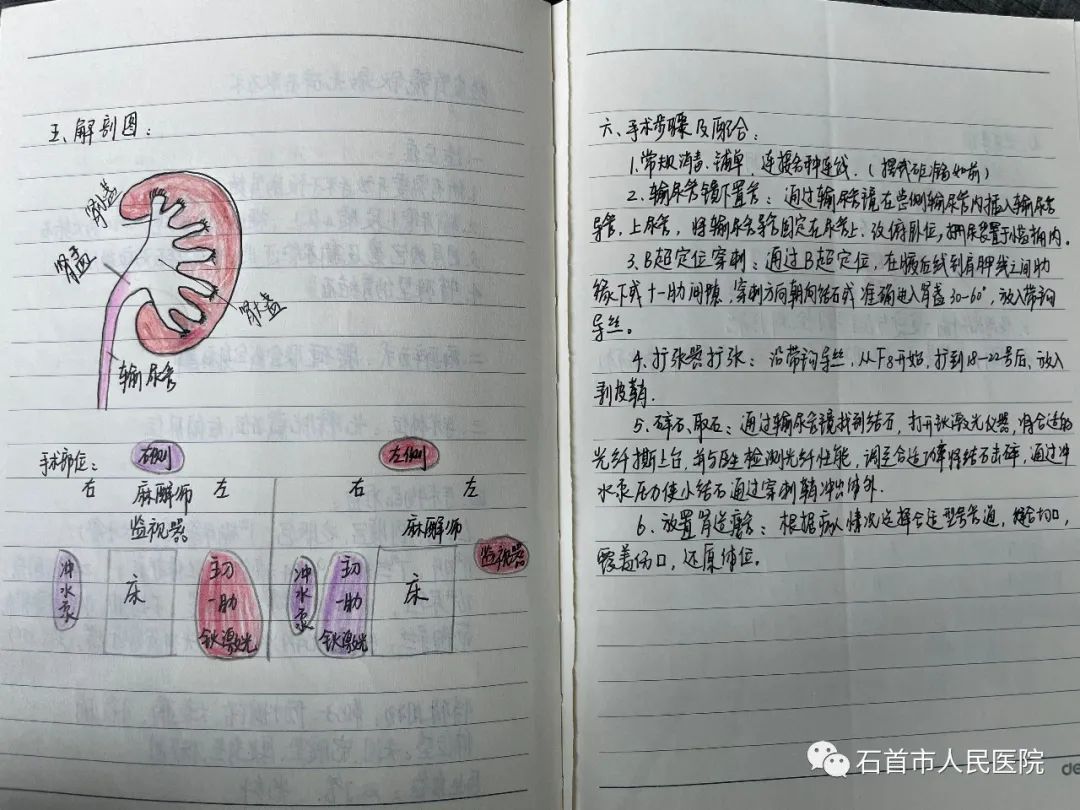 五、解剖图：
肾盏
肾盂
肾盏
输尿管
手术部位： 右侧 左侧
右 麻醉师 左 右 左
监视器 麻醉师
监视器
冲水泵 床 主刀 一助 钬激光 冲水泵 主刀 一助 钬激光 床
六、手术步骤及配合：
1.常规消毒.铺单.连接各种连线.(摆截石位 如前)
2.输尿管镜下置管：通过输尿管镜在患侧输尿管内插入输尿管
导管,上尿管,将输尿管导管固定在尿管上.改俯卧位,把尿袋置于 桶内.
3.B超定位穿刺：通过B超定位,在腋后线到肩胛线之间肋
缘下或十一肋间隙,穿刺方向朝向结石或准确进入肾盏30-60°,放入带钩
导丝。
4.扩张器扩张：沿带钩导丝,从F8开始,扩到18-22号后,放入
剥皮鞘.
5.碎石.取石：通过输尿管镜找到结石,打开钬激光仪器,将合适的
光纤撕上台,并与医生检测光纤性能,调至合适功率将结石击碎,通过冲
水泵压力使小结石通过穿刺鞘冲出体外.
6.放置肾造瘘管：根据病人情况选择合适型号管道,缝合切口,
覆盖伤口,还原体位。
石首市人民医院
de